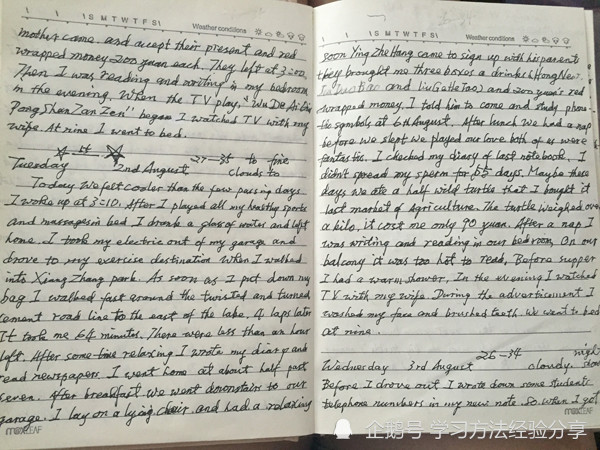 S M T W T F S
Weather conditions
mother came and accept their present and red
wrapped money 200 yuan each. They left at 3:20.
Then I was reading and writing in my bedroom
in the evening. When the TV play, "Wu De Ai
Pang Shan Zan Zen" began I watched TV with my
wife. At nine I went to bed.
to fine
Tuesday 2nd August clouds to
Today we felt cooler than the few passing days
I woke up at 3=10. After I played all my healthy sports
and massages in bed I drank a glass of water and left
home. I took my electric out of my garage and
drove to my exercise destination when I walked
into Xiang Zhang park. As soon as I put down my
bag I walked fast around the twisted and turned
cement road line to the east of the lake. 4 laps later
It took me 64 minutes. There were less than an hour
left. After some time relaxing I wrote my diary and
read newspapers. I went home at about half past
seven. After breakfast we went downstairs to our
garage. I lay on a lying chair and had a relaxing
LEAF
S M T W T F S
Weather conditions
soon Ying Zhe Hang came to sign up with his parents
they brought me three boxes a drink (Hong Niu,
and Liu Ge Hao) and 200 yuan red
wrapped money. I told him to come and study phone-
tic symbols at 6th August. After lunch we had a nap
before we slept we played our love both of us were
fantastic. I checked my diary of last notebook, I
didn't spread my sperm for 65 days. Maybe these
days we ate a half wild turtle that I bought it
last market of Agriculture. The turtle weighed over
a kilo, it cost me only 90 yuan. After a nap I
was writing and reading in our bedroom. On our
balcony it was too hot to read. Before supper
I had a warm shower. In the evening I watched
TV with my wife. During the advertisement I
washed my face and brushed teeth. We went to bed
at nine.
25-34
Wednesday 3rd August cloudy
Before I drove out I wrote down some students
telephone numbers in my new note. So when I got
企鹅号 学习方法经验分享